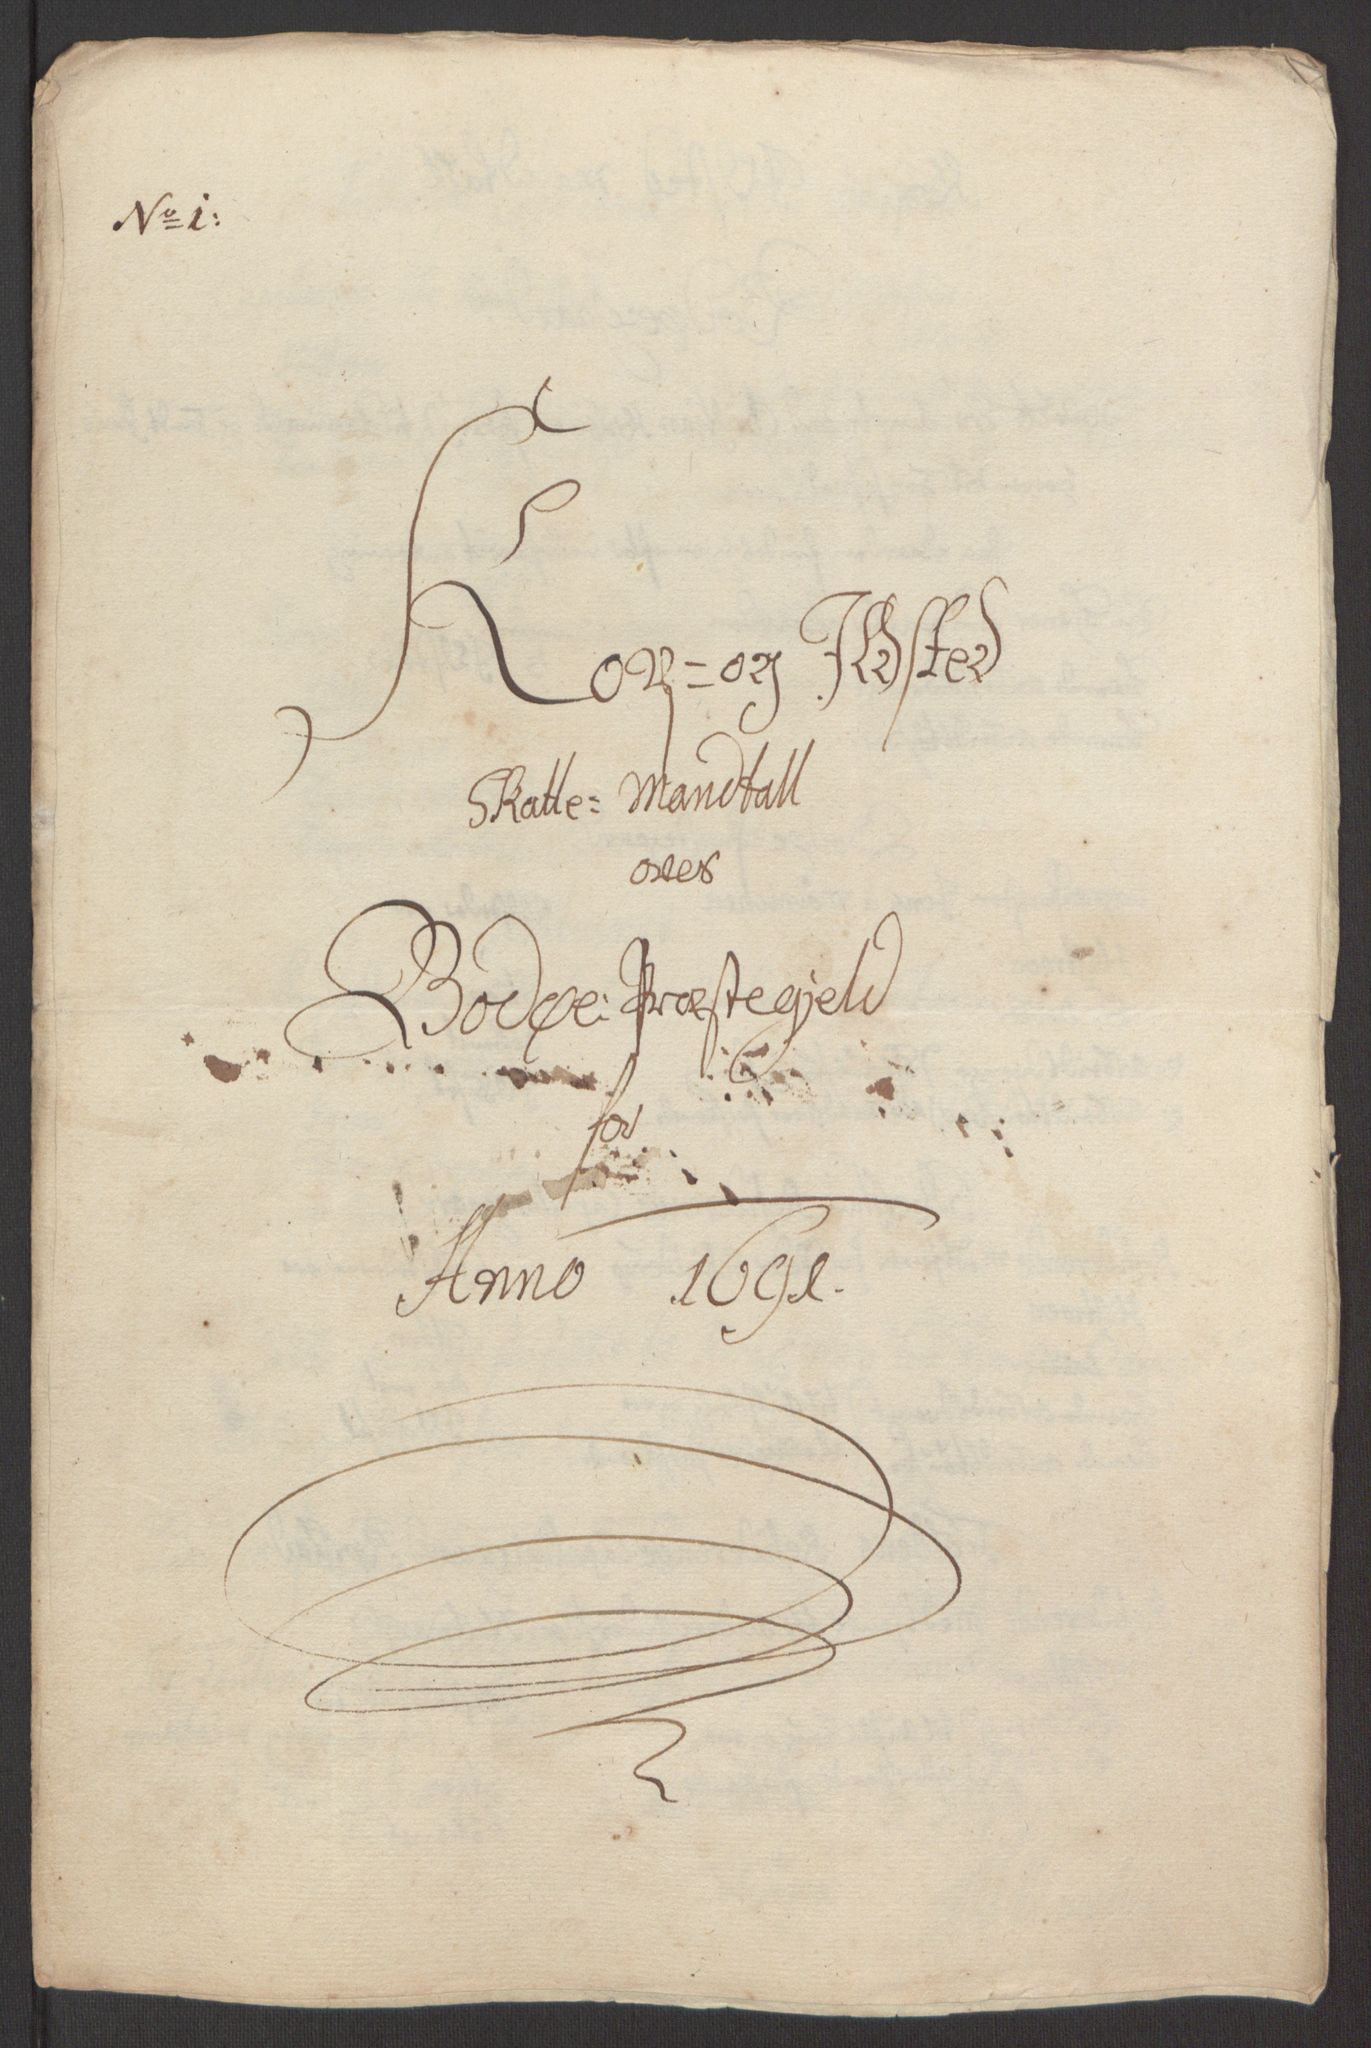 No 1:
Kop= og Ildsted
Skatte= Mandtall
over
Bodøe: Præstegjeld
for
Anno 1691.